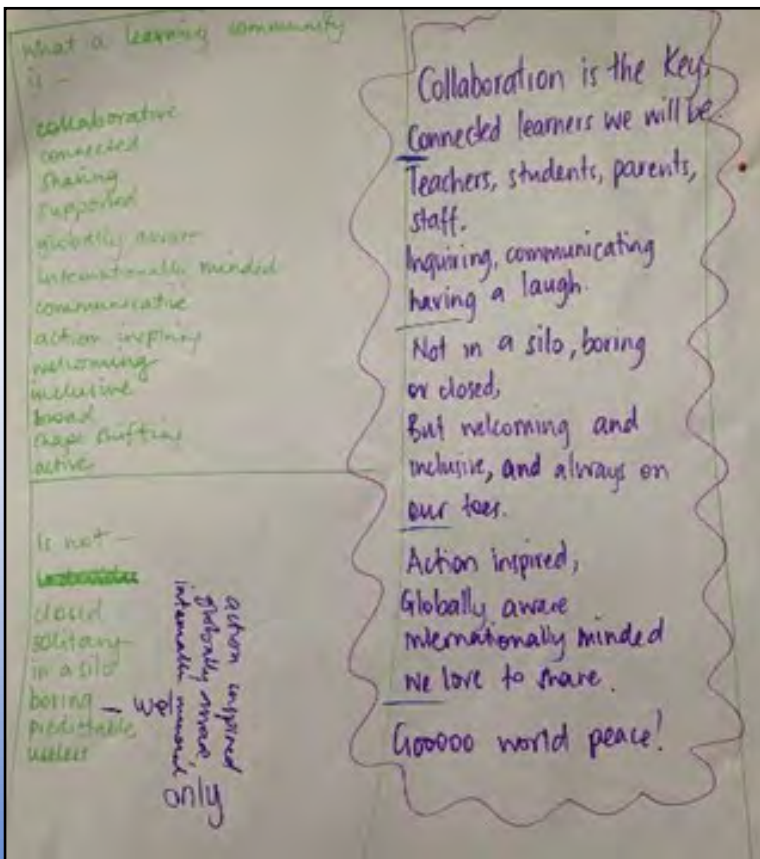 what a learning community
is -
collaborative
connected
sharing
supported
globally aware
internationally minded
communicative
action inspiring
welcoming
inclusive
broad
shape shifting
active
Is not -
closed
solitary
in a silo
boring
predictable
useless
action inspired
globally aware
minded
only
Collaboration is the Key,
Connected learners we will be.
Teachers, students, parents,
staff.
Inquiring, communicating
having a laugh.
Not in a silo, boring
or closed,
But welcoming and
inclusive, and always on
our toes.
Action inspired,
Globally aware
Internationally minded
We love to share.
Gooooo world peace!